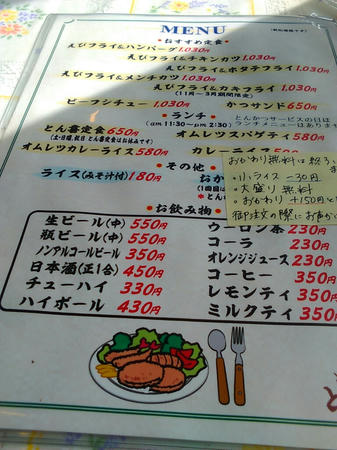 MENU
おすすめ定食
えびフライ&ハンバーグ 1,030円
えびフライ&チキンカツ 1,030円
えびフライ&ホタテフライ 1,030円
えびフライ&メンチカツ 1,030円
えびフライ&カキフライ 1,030円
(11月〜3月期間限定)
ビーフシチュー 1,030円 かつサンド 650円
ランチ
(am 11:30〜pm 2:30)
とんかつサービスの日は
ランチメニューはありま
とん番定食 650円
オムレツスパゲティ 580円
(土・日曜、祝日 とん番定食はお休みです)
オムレツカレーライス 580円
カレーライス
その他
ライス(みそ汁付) 180円
おか
(1回目は
おかわり無料は終
・小ライス −30円
・大盛り 無料
・おかわり +150円
御注文の際にお声が
お飲み物
生ビール(中) 550円
瓶ビール(中) 550円
ノンアルコールビール 350円
日本酒(正1合) 450円
チューハイ 330円
ハイボール 430円
ウーロン茶 230円
コーラ 230円
オレンジジュース 230円
コーヒー 350円
レモンティ 350円
ミルクティ 350円